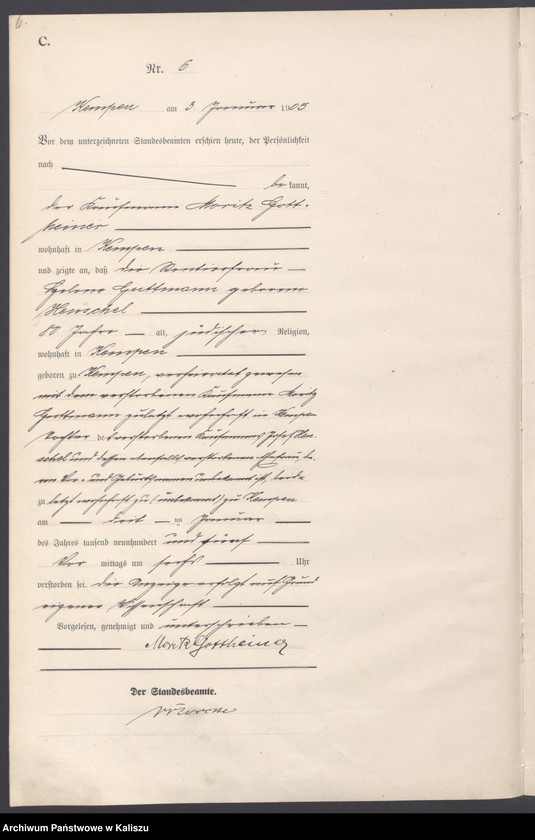 6.
C.
Nr. 6
Kempen am 3 Januar 1905
Vor dem unterzeichneten Standesbeamten erschien heute, der Persönlichkeit
nach
be kannt,
der Kaufmann Moritz Gott-
heiner
wohnhaft in Kempen
und zeigte an, daß die Rentierfrau
Helene Guttmann geborene
Henschel
80 Jahre alt, jüdischer Religion,
wohnhaft in Kempen
geboren zu Kempen, verheiratet gewesen
mit dem verstorbenen Kaufmann Moritz
Guttmann zuletzt wohnhaft in Kempen
Tochter des verstorbenen Kaufmanns Josef Hen-
schel und dessen ebenfalls verstorbenen Ehefrau, de-
ren Vor- und Geburtsnamen unbekannt ist, beide
zu letzt wohnhaft zu (unbekannt) zu Kempen
am drit ten Januar
des Jahres tausend neunhundert und fünf
Vor mittags um sechs Uhr
verstorben sei. Die Anzeige erfolgt auf Grund
eigener Wissenschaft
Vorgelesen, genehmigt und unterschrieben
Moritz Gottheiner
Der Standesbeamte.
Archiwum Państwowe w Kaliszu